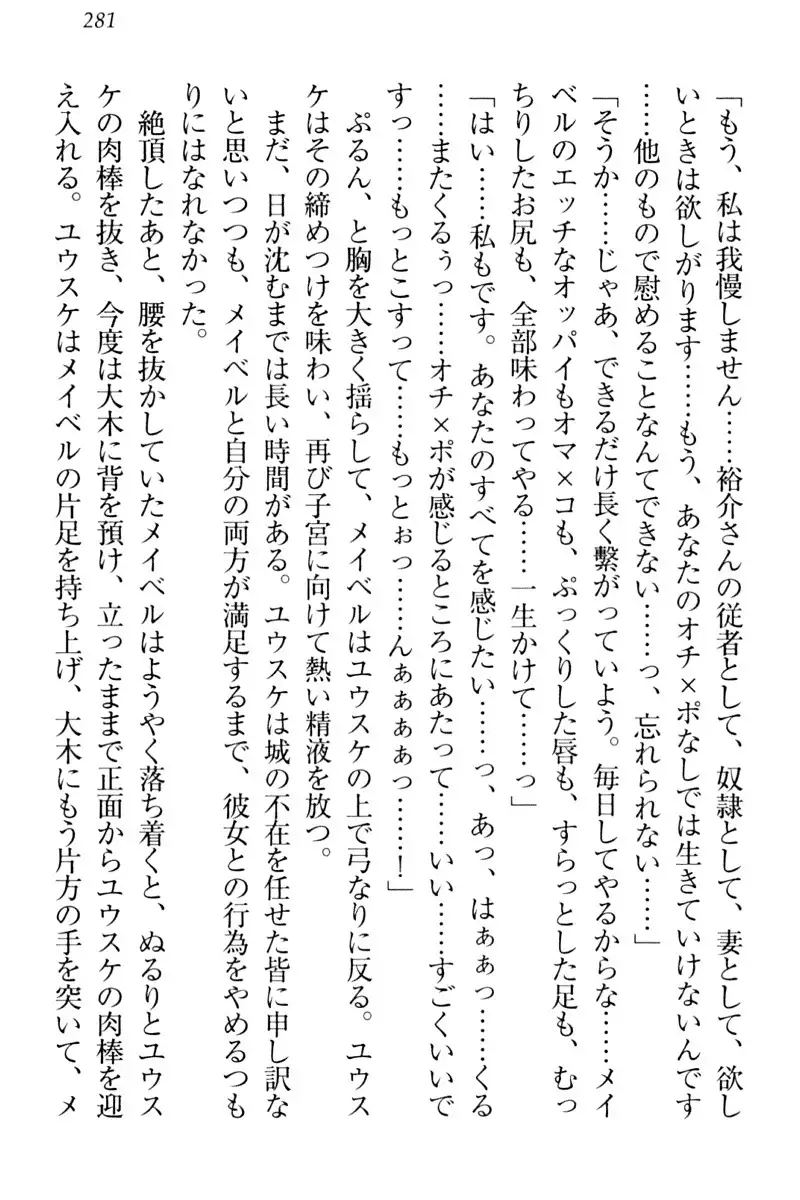 281
「もう、私は我慢しません……裕介さんの従者として、奴隷として、妻として、欲し
いときは欲しがります……もう、あなたのオチ×ポなしでは生きていけないんです
……他のもので慰めることなんてできない……っ、忘れられない……」
「そうか……じゃあ、できるだけ長く繋がっていよう。毎日してやるからな……メイ
ベルのエッチなオッパイもオマ×コも、ぷっくりした唇も、すらっとした足も、むっ
ちりしたお尻も、全部味わってやる……一生かけて……っ」
「はい……私もです。あなたのすべてを感じたい……っ、あっ、はぁぁっ……くる
……またくるぅっ……オチ×ポが感じるところにあたって……いい……すごくいいで
すっ……もっとこすって……もっとぉっ……んぁぁぁぁっ……！」
ぷるん、と胸を大きく揺らして、メイベルはユウスケの上で弓なりに反る。ユウス
ケはその締めつけを味わい、再び子宮に向けて熱い精液を放つ。
まだ、日が沈むまでは長い時間がある。ユウスケは城の不在を任せた皆に申し訳な
いと思いつつも、メイベルと自分の両方が満足するまで、彼女との行為をやめるつも
りにはなれなかった。
絶頂したあと、腰を抜かしていたメイベルはようやく落ち着くと、ぬるりとユウス
ケの肉棒を抜き、今度は大木に背を預け、立ったままで正面からユウスケの肉棒を迎
え入れる。ユウスケはメイベルの片足を持ち上げ、大木にもう片方の手を突いて、メ